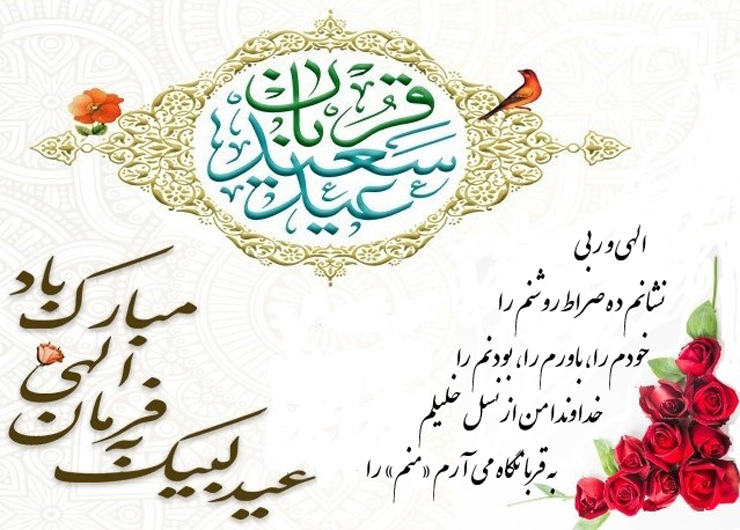 عید سعید قربان
الهی و ربی
نشانم ده صراط روشنم را
خودم را، باورم را، بودنم را
خداوندا من از نسل خلیلم
به قربانگاه می آرم «منم» را
عید لبیک
به فرمان
الهی
مبارک باد